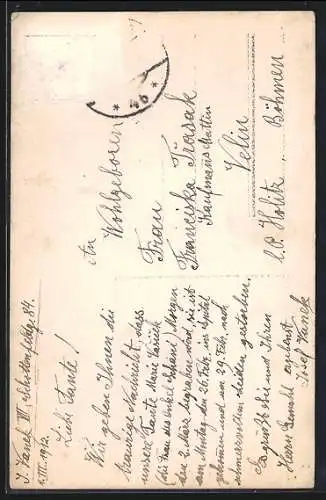 J. Vanek VII Schottenfeldg. 84.
1. III. 1912.
Liebe Tante!
Wir geben Ihnen die
traurige Nachricht, dass
unsere Tante Marie Vanick
(die Frau des Onkel Johann) Morgen
den 2. März begraben wird, sie ist
am Montag den 26. Febr. im Spital
gekommen und am 29. Febr. nach
schmerzvollen Leiden gestorben.
Es grüßt Sie und Ihren
Herrn Gemahl
Josef Vanek
An Wohlgeboren
Frau
Franciska Trasak
Kaufmanns Gattin
Velin
b. P. Holitz, Böhmen